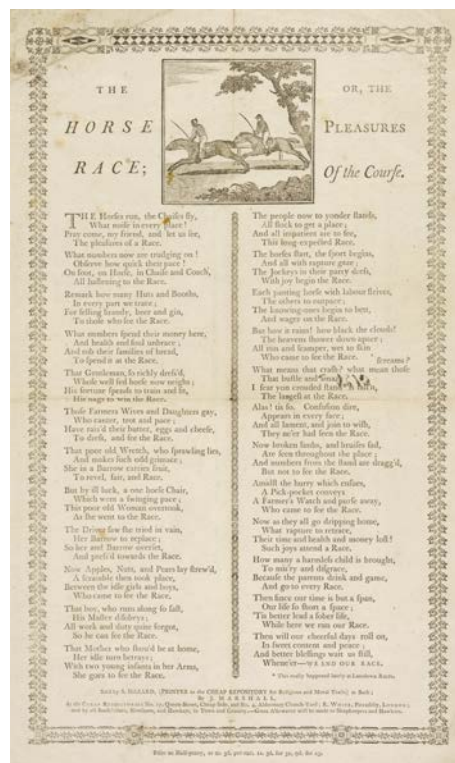 THE
HORSE
RACE;
OR, THE
PLEASURES
Of the Courſe.
THE Horſes run, the Chaiſes fly,
What noiſe in every place!
Pray come, my friend, and let us ſee,
The pleaſures of a Race.
What numbers now are trudging on!
Obſerve how quick their pace!
On foot, on Horſe, in Chaiſe and Coach,
All haſtening to the Race.
Remark how many Huts and Booths,
In every part we trace;
For ſelling brandy, beer and gin,
To thoſe who ſee the Race.
What numbers ſpend their money here,
And health and ſoul embrace;
And rob their families of bread,
To ſpend it at the Race.
That Gentleman, ſo richly dreſs'd,
Whoſe well fed horſe now
His fortune ſpends to train and
His nags to win the Race.
Thoſe Farmers Wives and Daughters gay,
Who canter, trot and pace;
Have rais'd their butter, eggs and cheeſe,
To dreſs, and ſee the Race.
That poor old Wretch, who ſprawling lies,
And makes ſuch odd grimace;
She in a Barrow carries fruit,
To revel, fair, and Race.
But by ill luck, a one horſe Chair,
Which went a ſwinging pace;
This poor old Woman overtook,
As ſhe went to the Race.
The ſaw ſhe tried in vain,
Her Barrow to replace;
So her and Barrow overſet,
And preſs'd towards the Race.
Now Apples, Nuts, and Pears lay ſtrew'd,
A ſcramble then took place,
Between the idle girls and boys,
Who came to ſee the Race.
That boy, who runs along ſo faſt,
His Maſter diſobeys;
All work and duty quite forgot,
So he can ſee the Race.
That Mother who ſhou'd be at home,
Her idle turn betrays;
With two young infants in her Arms,
She goes to ſee the Race.
The people now to yonder ſtands,
All flock to get a place;
And all impatient are to ſee,
This long-expected Race.
The horſes ſtart, the ſport begins,
And all with rapture gaze;
The Jockeys in their party dreſs,
With joy begin the Race.
Each panting horſe with labour ſtrives,
The others to outpace;
The knowing-ones begin to bett,
And wager on the Race.
But how it rains! how black the clouds!
The heavens ſhower down apace;
All run and ſcamper, wet to ſkin
Who came to ſee the Race.
ſcreams?
What means that craſh? what mean thoſe
That buſtle and
I fear yon crouded ſtand
The largeſt at the Race.
Alas! tis ſo. Confuſion dire,
Appears in every face;
And all lament, and join to wiſh,
They ne'er had ſeen the Race.
Now broken limbs, and bruiſes ſad,
Are ſeen throughout the place;
And numbers from the ſtand are dragg'd,
But not to ſee the Race.
Amidſt the hurry which enſues,
A Pick-pocket conveys
A Farmer's Watch and purſe away,
Who came to ſee the Race.
Now as they all go dripping home,
What rapture to retrace,
Their time and health and money loſt!
Such joys attend a Race.
How many a harmleſs child is brought,
To mis'ry and diſgrace,
Becauſe the parents drink and game,
And go to every Race.
Then ſince our time is but a ſpan,
Our life ſo ſhort a ſpace;
'Tis better lead a ſober life,
While here we run our Race.
Then will our cheerful days roll on,
In ſweet content and peace;
And better bleſſings wait us ſtill,
Whene'er—WE END OUR RACE.
* This really happened lately at Races.
Sold by S. HAZARD, (PRINTER to the CHEAP REPOSITORY for Religious and Moral Tracts) at Bath;
By J. MARSHALL,
At the CHEAP No. 17, Queen Street, Cheap-Side, and No. 4, Aldermary Church Yard; R. WHITE, Piccadilly, LONDON;
and by all Bookſellers, Newſmen, and Hawkers, in Town and Country.—Great Allowance will be made to Shopkeepers and Hawkers.